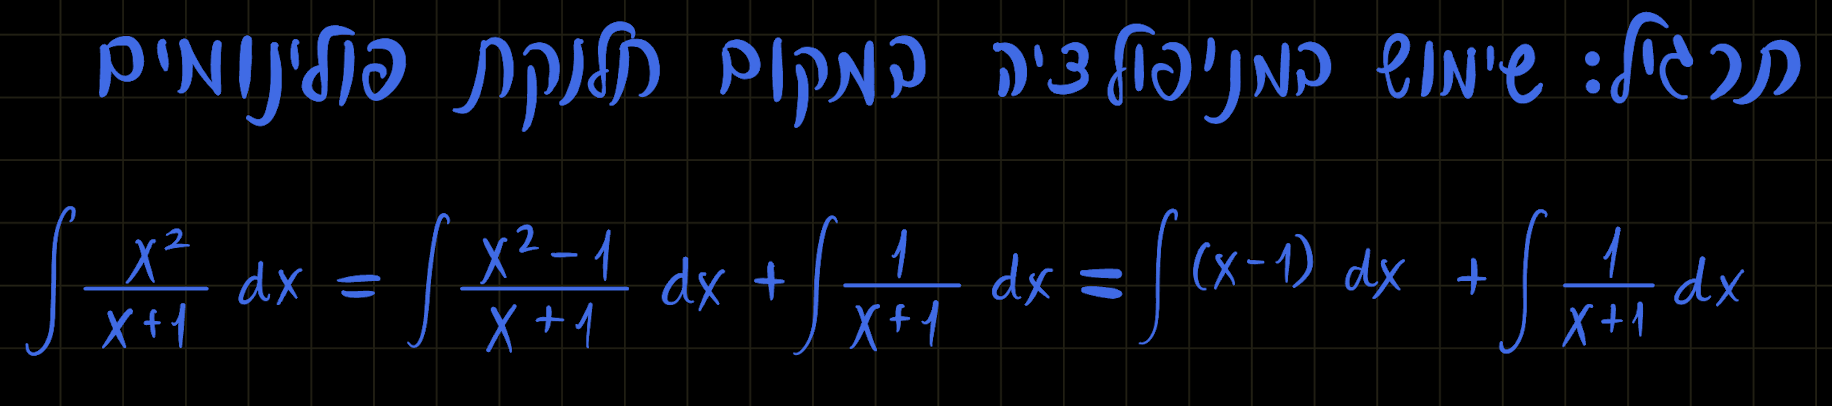 תרגיל: שימוש במניפולציה במקום חלוקת פולינומים
∫ x²/(x+1) dx = ∫ (x²-1)/(x+1) dx + ∫ 1/(x+1) dx = ∫ (x-1) dx + ∫ 1/(x+1) dx